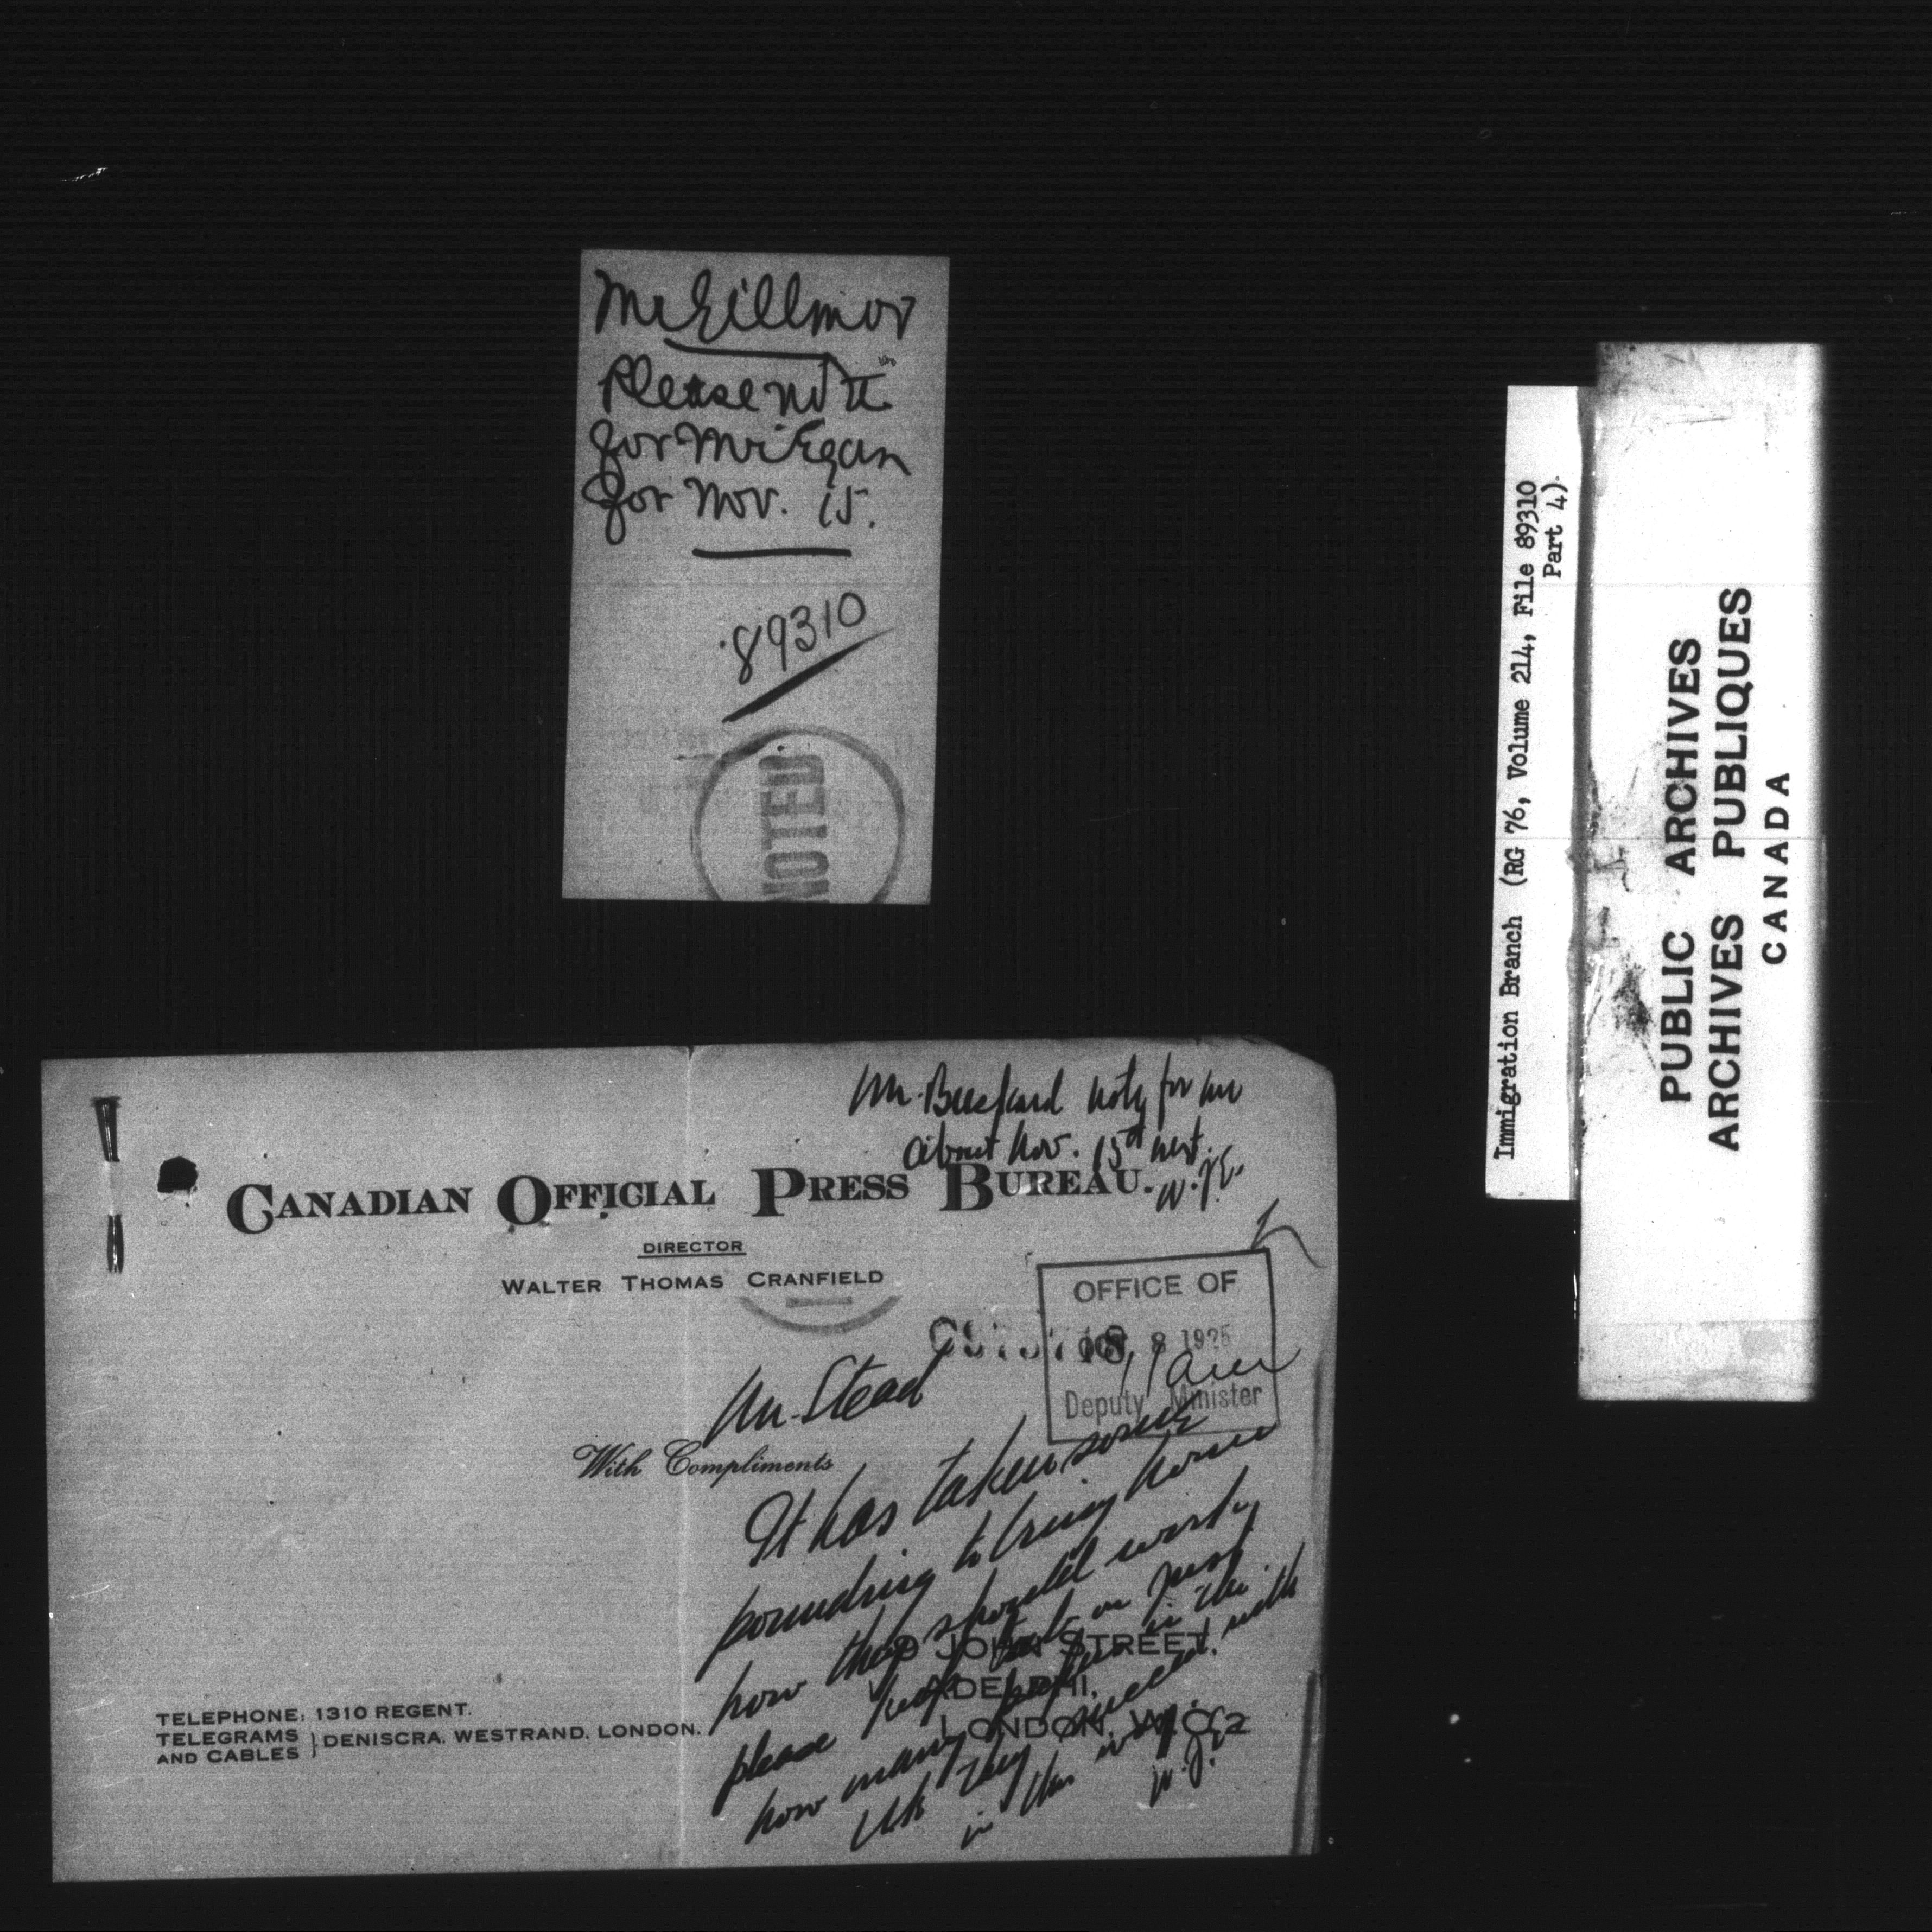 Mr Gillmor
Please note
for Mr Egan
for Nov. 15.
89310
NOTED
Immigration Branch (RG 76, Volume 214, File 89310
Part 4)
PUBLIC ARCHIVES
ARCHIVES PUBLIQUES
CANADA
Mr. note for me
about Nov. 15th next.
W.J.E.
CANADIAN OFFICIAL PRESS BUREAU.
DIRECTOR
WALTER THOMAS CRANFIELD
OFFICE OF
OCT 8 1925
Deputy Minister
Mr. Stead
With Compliments
It has taken some
pounding to bring home
how they should work
please keep tab on just
how many papers in the
UK they succeed with
in this way.
W.J.E.
JOHN STREET,
ADELPHI,
LONDON, W.C.2
TELEPHONE: 1310 REGENT.
TELEGRAMS
AND CABLES } DENISCRA, WESTRAND, LONDON.